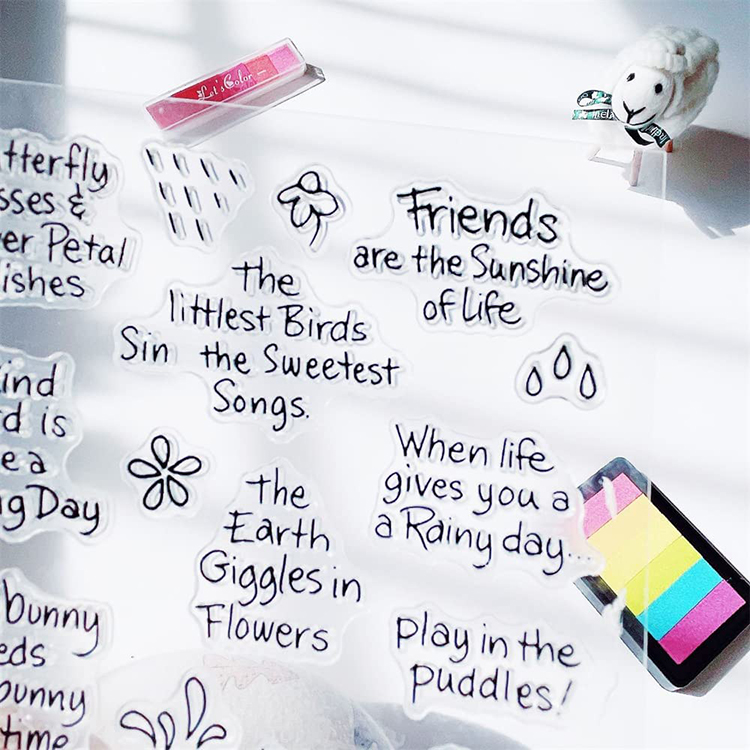 Let's Color
tterfly
sses &
er Petal
ishes
Friends
are the Sunshine
of Life
the
littlest Birds
Sin the Sweetest
Songs.
ind
d is
e a
g Day
When life
gives you a
a Rainy day...
the
Earth
Giggles in
Flowers
bunny
eds
bunny
time
play in the
puddles!